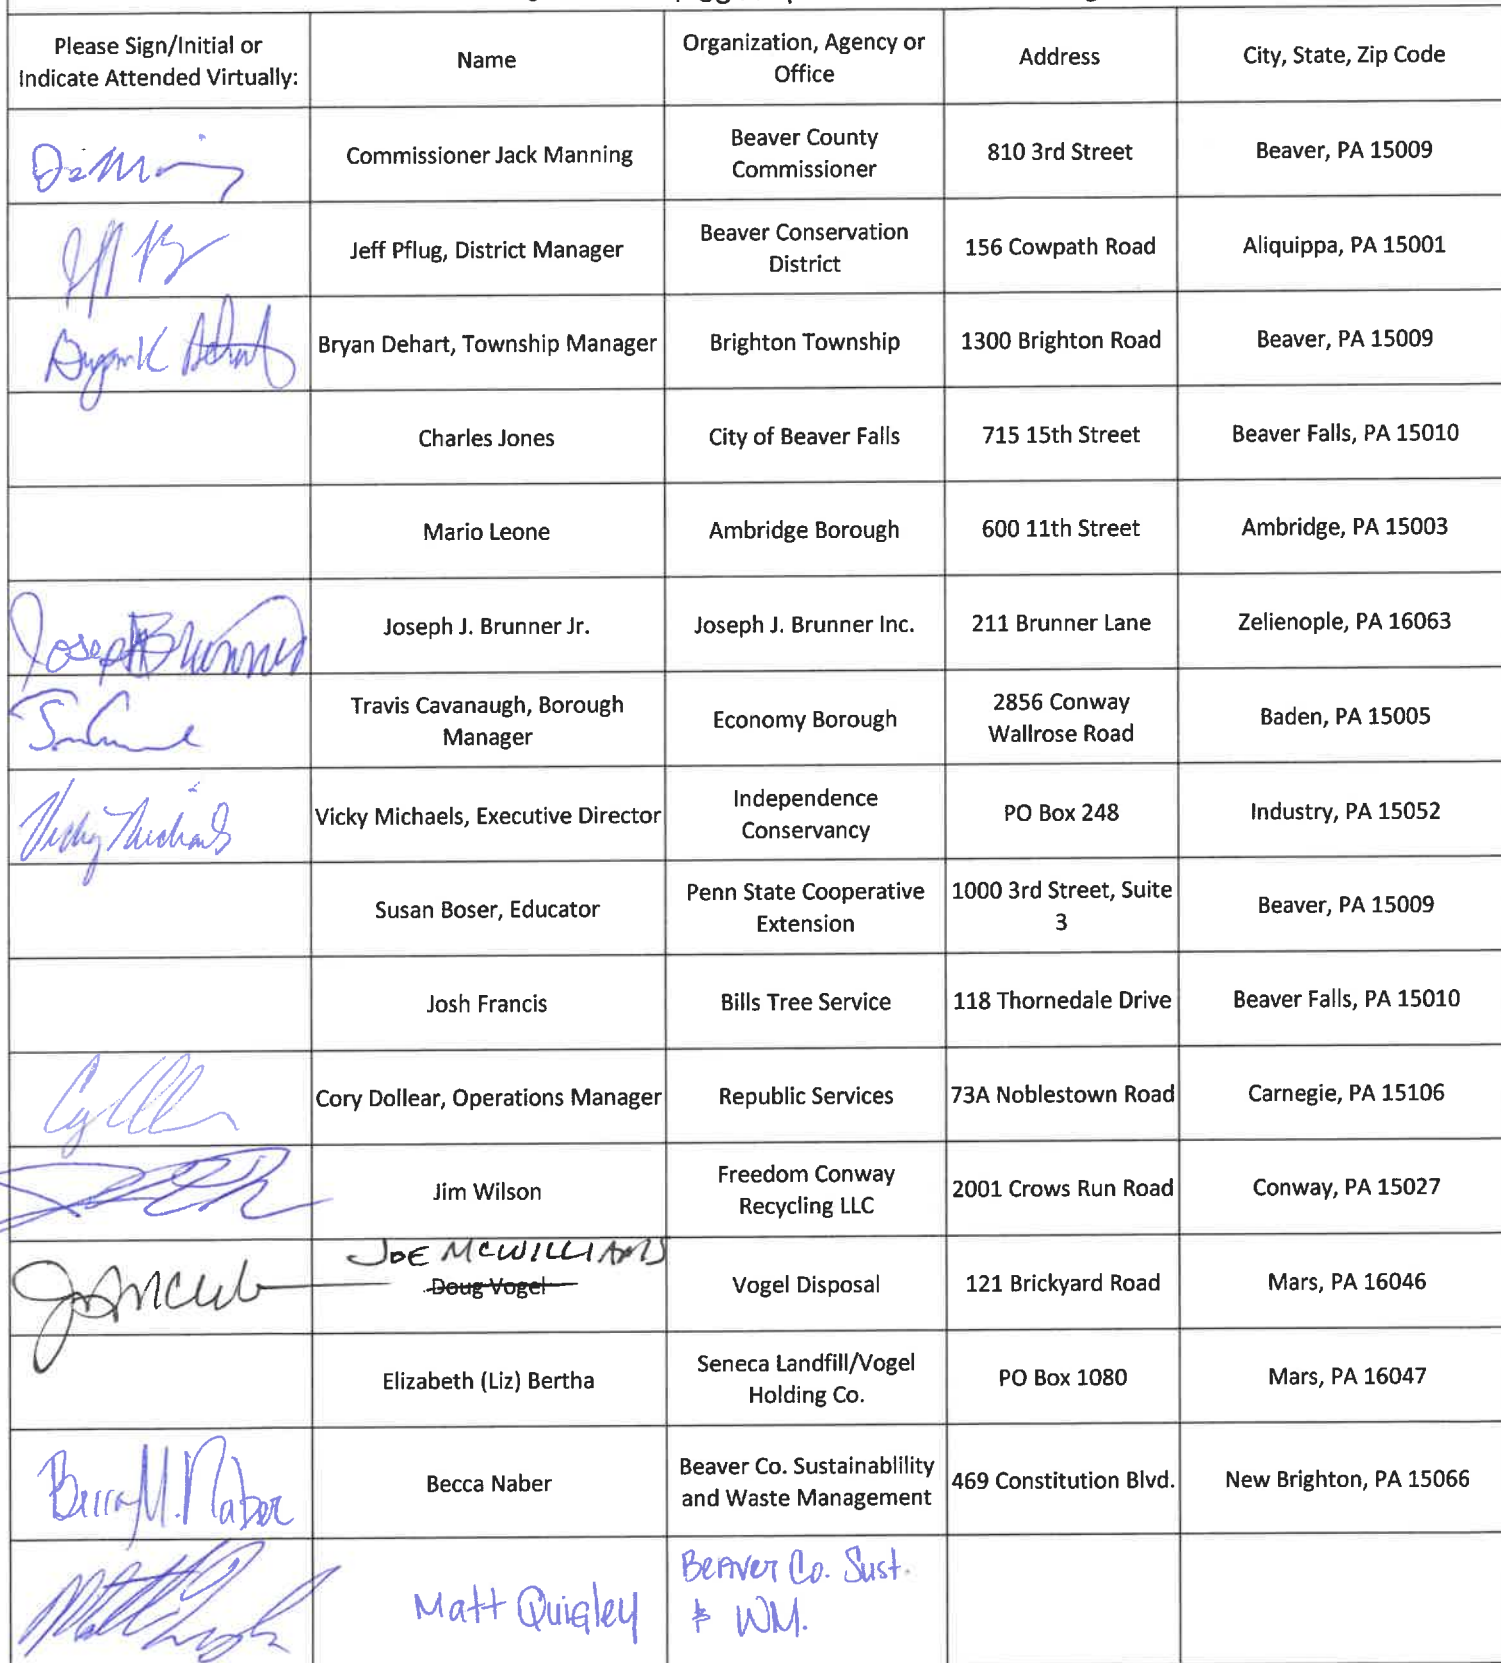 Please Sign/Initial or
Indicate Attended Virtually:
Name
Organization, Agency or
Office
Address
City, State, Zip Code
Commissioner Jack Manning
Beaver County
Commissioner
810 3rd Street
Beaver, PA 15009
Jeff Pflug, District Manager
Beaver Conservation
District
156 Cowpath Road
Aliquippa, PA 15001
Bryan K Dehart
Bryan Dehart, Township Manager
Brighton Township
1300 Brighton Road
Beaver, PA 15009
Charles Jones
City of Beaver Falls
715 15th Street
Beaver Falls, PA 15010
Mario Leone
Ambridge Borough
600 11th Street
Ambridge, PA 15003
Joseph Brunner
Joseph J. Brunner Jr.
Joseph J. Brunner Inc.
211 Brunner Lane
Zelienople, PA 16063
Travis Cavanaugh, Borough
Manager
Economy Borough
2856 Conway
Wallrose Road
Baden, PA 15005
Vicky Michaels
Vicky Michaels, Executive Director
Independence
Conservancy
PO Box 248
Industry, PA 15052
Susan Boser, Educator
Penn State Cooperative
Extension
1000 3rd Street, Suite
3
Beaver, PA 15009
Josh Francis
Bills Tree Service
118 Thornedale Drive
Beaver Falls, PA 15010
Cory Dollear, Operations Manager
Republic Services
73A Noblestown Road
Carnegie, PA 15106
Jim Wilson
Freedom Conway
Recycling LLC
2001 Crows Run Road
Conway, PA 15027
JOE MCWILLIAMS
Doug Vogel
Vogel Disposal
121 Brickyard Road
Mars, PA 16046
Elizabeth (Liz) Bertha
Seneca Landfill/Vogel
Holding Co.
PO Box 1080
Mars, PA 16047
Becca M. Naber
Becca Naber
Beaver Co. Sustainablility
and Waste Management
469 Constitution Blvd.
New Brighton, PA 15066
Matt Quigley
Beaver Co. Sust.
& WM.